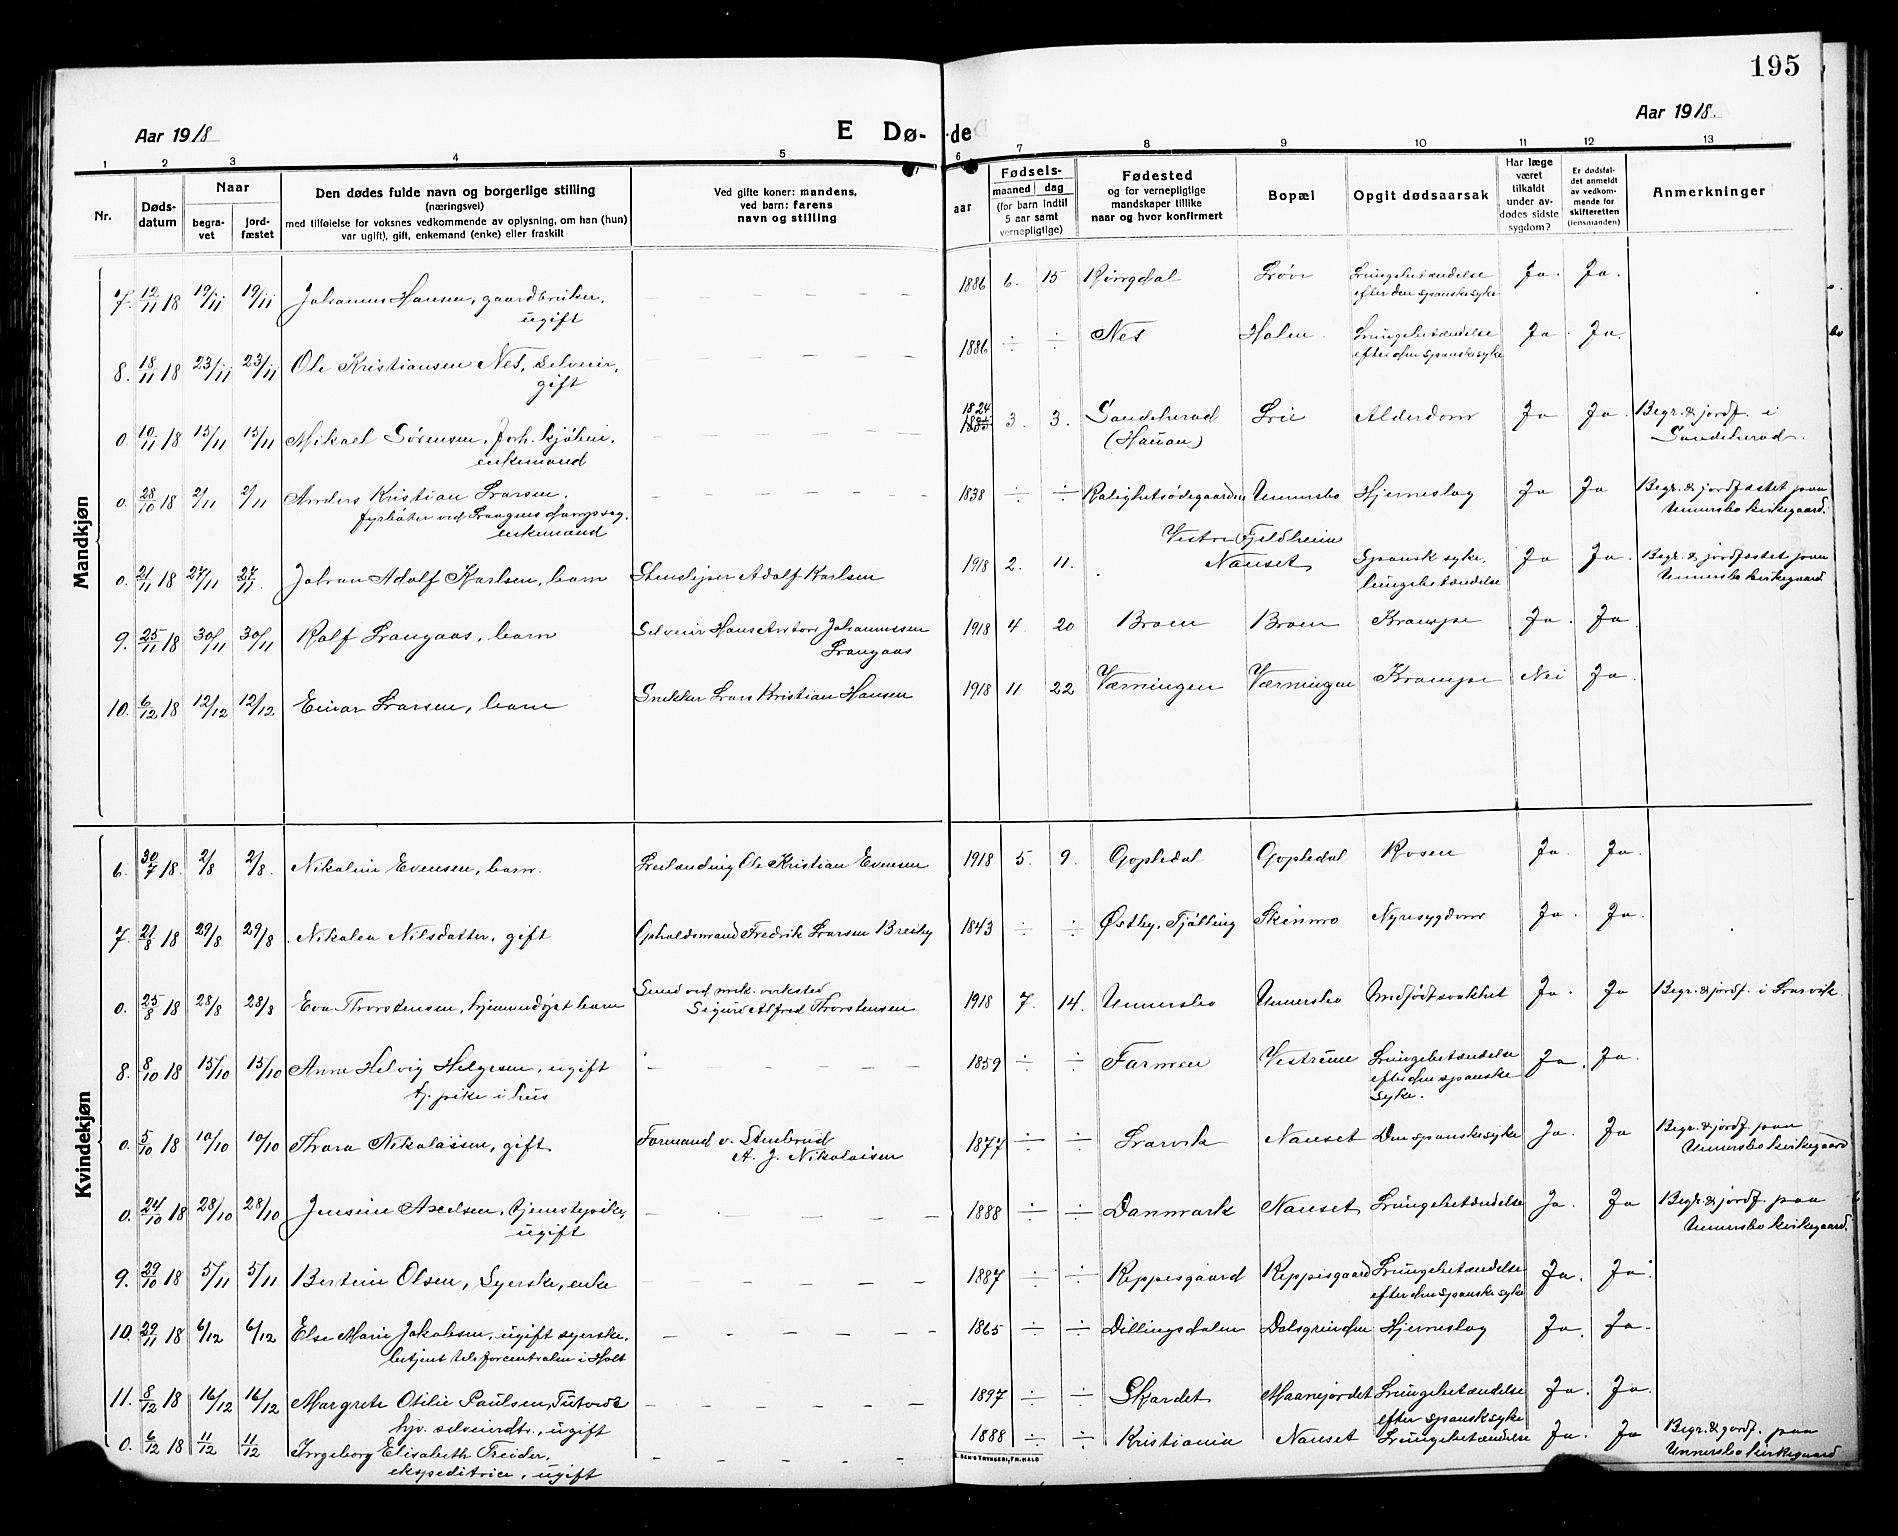 195
Aar 1918
E Dø-
de
Aar 1918.
1 2 3 4 5 6 7 8 9 10 11 12 13
Nr.
Døds-
datum
Naar
begra-
vet
jord-
fæstet
Den dødes fulde navn og borgerlige stilling
(næringsvei)
med tilføielse for voksnes vedkommende av oplysning, om han (hun)
var ugift), gift, enkemand (enke) eller fraskilt
Ved gifte koner: mandens,
ved barn: farens
navn og stilling
Fødsels-
aar
maaned dag
(for barn indtil
5 aar samt
vernepligtige)
Fødested
og for vernepligtige
mandskaper tillike
naar og hvor konfirmert
Bopæl
Opgit dødsaarsak
Har læge
været
tilkaldt
under av-
dødes sidste
sygdom?
Er dødsfal-
det anmeldt
av vedkom-
mende for
skifteretten
(lensmanden)
Anmerkninger
Mandkjøn
7. 12/11 18 19/11 19/11 Johannes Hansen, gaardbruker, 1886 6. 15 Røngdal Lungebetændelse Ja. Ja.
ugift efter den spanske syke
8. 18/11 18 23/11 23/11 Ole Kristiansen Nes, selveier, 1886 ÷ ÷ Nes Holen Lungebetændelse Ja. Ja.
gift efter den spanske syke
0. 10/11 18 15/11 15/11 Mikael Sørensen, Forh. kjøbm., 1824 3. 3. Sandeherad Lie Alderdom Ja Ja Begr. & jordf. i
enkemand (Hauan) Sandeherad.
0. 28/10 18 2/11 2/11 Anders Kristian Larsen. 1838 ÷ ÷ Ralighetsødegaarden Unnersbo Hjerneslag Ja Ja Begr. & jordfæstet paa
fyrbøter ved Langens dampsag. Unnersbo kirkegaard.
enkemand
Vestre Fjeldheim
0. 21/11 18 27/11 27/11 Johan Adolf Karlsen, barn Stensliper Adolf Karlsen 1918 2. 11. Nanset Spansk syke, Ja Ja. Begr. & jordfæstet paa
lungebetændelse Unnersbo kirkegaard
9. 25/11 18 30/11 30/11 Ralf Langaas, barn Selveier Hans Anton Johannessen 1918 4. 20 Broen Broen Krampe Ja. Ja.
Langaas
10. 6/12 18 12/12 12/12 Einar Larsen, barn Snekker Lars Kristian Hansen 1918 11 22 Værningen Værningen Krampe Nei Ja.
Kvindekjøn
6. 30/7 18. 2/8 2/8. Nikoline Evensen, barn. Leilænding Ole Kristian Evensen 1918 5. 9. Gopledal Gopledal Rosen Ja. Ja.
7. 21/8 18 29/8 29/8. Nikolea Nilsdatter, gift Opholdsmand Fredrik Larsen Bresby 1843 ÷ ÷ Østby, Tjølling Skinmo Nyresygdom Ja. Ja.
0. 25/8 18 28/8 28/8 Eva Thorstensen, hjemmedøpt barn Smed ved mek. verksted 1918 7. 14. Unnersbo Unnersbo Medfødt svakhet Ja. Ja Begr. & jordf. i Larvik.
Sigurd Alfred Thorstensen
8. 8/10 18 15/10 15/10 Anne Helvig Helgesen, ugift 1859 ÷ ÷ Farmen Vestrum Lungebetændelse Ja. Ja.
tj. pike i hus efter den spanske
syke.
0. 5/10 18 10/10 10/10 Thora Nikolaisen, gift Formand v. Stenbrud 1877 ÷ ÷ Larvik Nanset Den spanske syke Ja. Ja Begr. & jordf. paa
A. J. Nikolaisen Unnersbo kirkegaard
0. 24/10 18 28/10 28/10 Jensine Axelsen, tjenestepike, 1888 ÷ ÷ Danmark Nanset Lungebetændelse Ja. Ja Begr. & jordf. paa
ugift Unnersbo kirkegaard.
9. 29/10 18 5/11 5/11 Bertine Olsen, Syerske, enke 1887 ÷ ÷ Reppesgaard Reppesgaard Lungebetændelse Ja. Ja.
efter den spanske syke
10. 29/11 18 6/12 6/12 Else Marie Jakobsen, ugift syerske, 1865 ÷ ÷ Dillingsdalen Dalsgrinden Hjerneslag Ja. Ja.
betjent telefoncentralen i Holt
11. 8/12 18 16/12 16/12 Margrete Otilie Paulsen, 1897 ÷ ÷ Skardet Maanejordet Lungebetændelse Ja. Ja.
hjv. selveierdtr., ugift efter spansk syke
0. 6/12 18 11/12 11/12 Ingeborg Elisabeth Treider, 1888 ÷ ÷ Kristiania Nanset Lungebetændelse Ja. Ja Begr. & jordf. paa
ekspeditrice, ugift Unnersbo kirkegaard